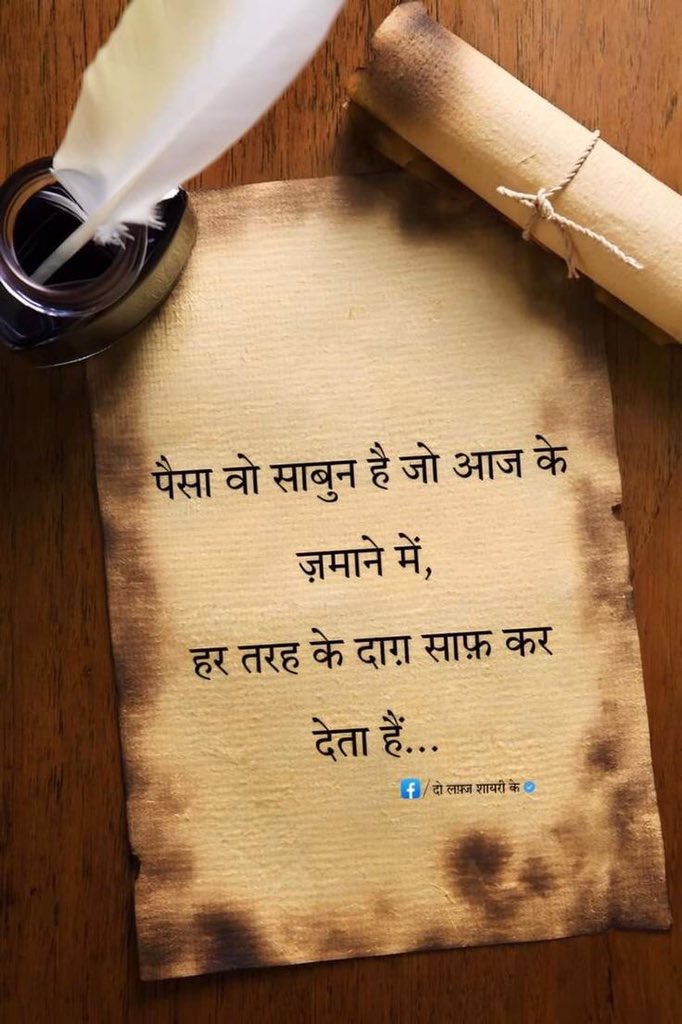 पैसा वो साबुन है जो आज के
ज़माने में,
हर तरह के दाग़ साफ़ कर
देता हैं...
/ दो लफ़्ज शायरी के